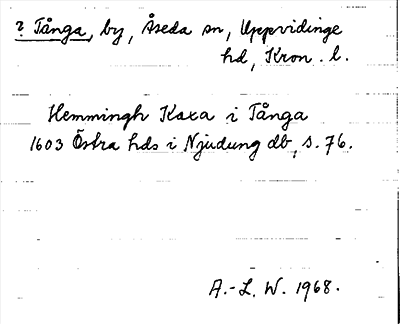 ? Tånga, by, Åseda sn, Uppvidinge
hd, Kron. l.
Hemmingh Kaxa i Tånga
1603 Östra hds i Njudung db, s. 76.
A.-L. W. 1968.